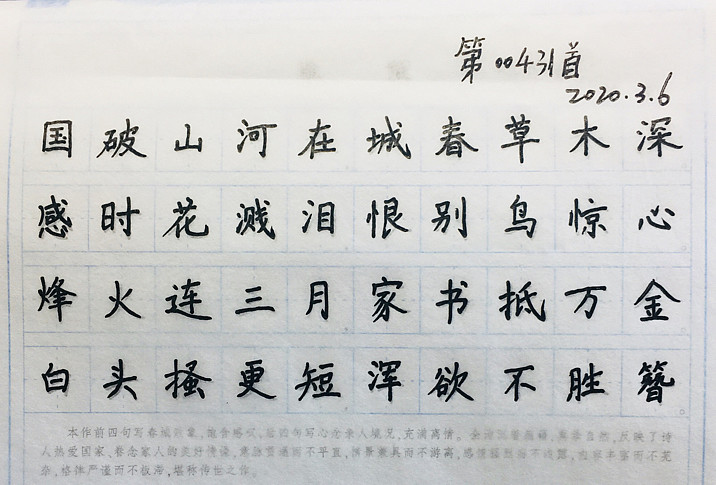 第0043首
2020.3.6
国破山河在城春草木深
感时花溅泪恨别鸟惊心
烽火连三月家书抵万金
白头搔更短浑欲不胜簪
本作前四句写春城败象,饱含感叹,后四句写心念亲人境况,充满离情。反映了诗
人热爱国家、眷念家人的美好情操,意脉贯通而不平直,情景兼具而不游离,感情强烈而不浅露,内容丰富而不芜
杂,格律严谨而不板滞,堪称传世之作。